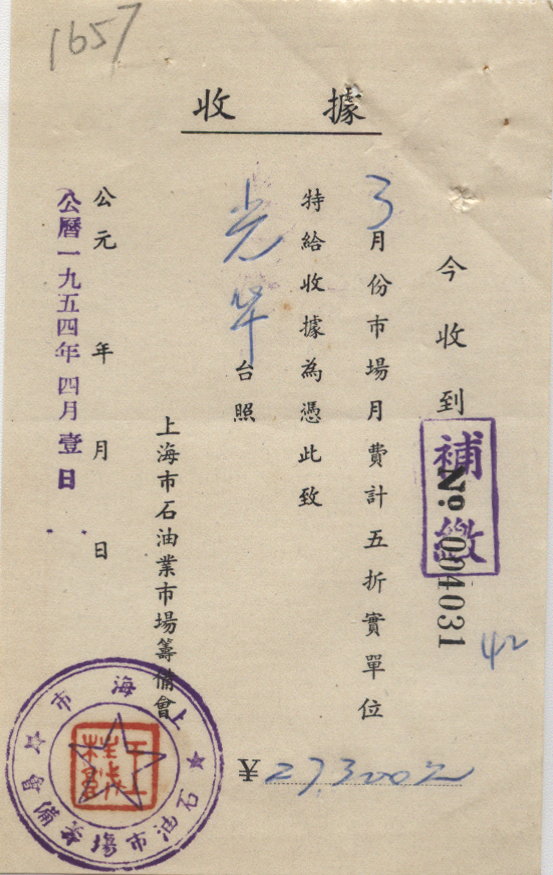 1657
收據
今收到
補繳
No 004031
42
3月份市場月費計五折實單位
特給收據為憑此致
光华台照
上海市石油業市場籌備會
¥27,300元
公元 年 月 日
公曆一九五四年四月壹日
上海市石油市場籌備會